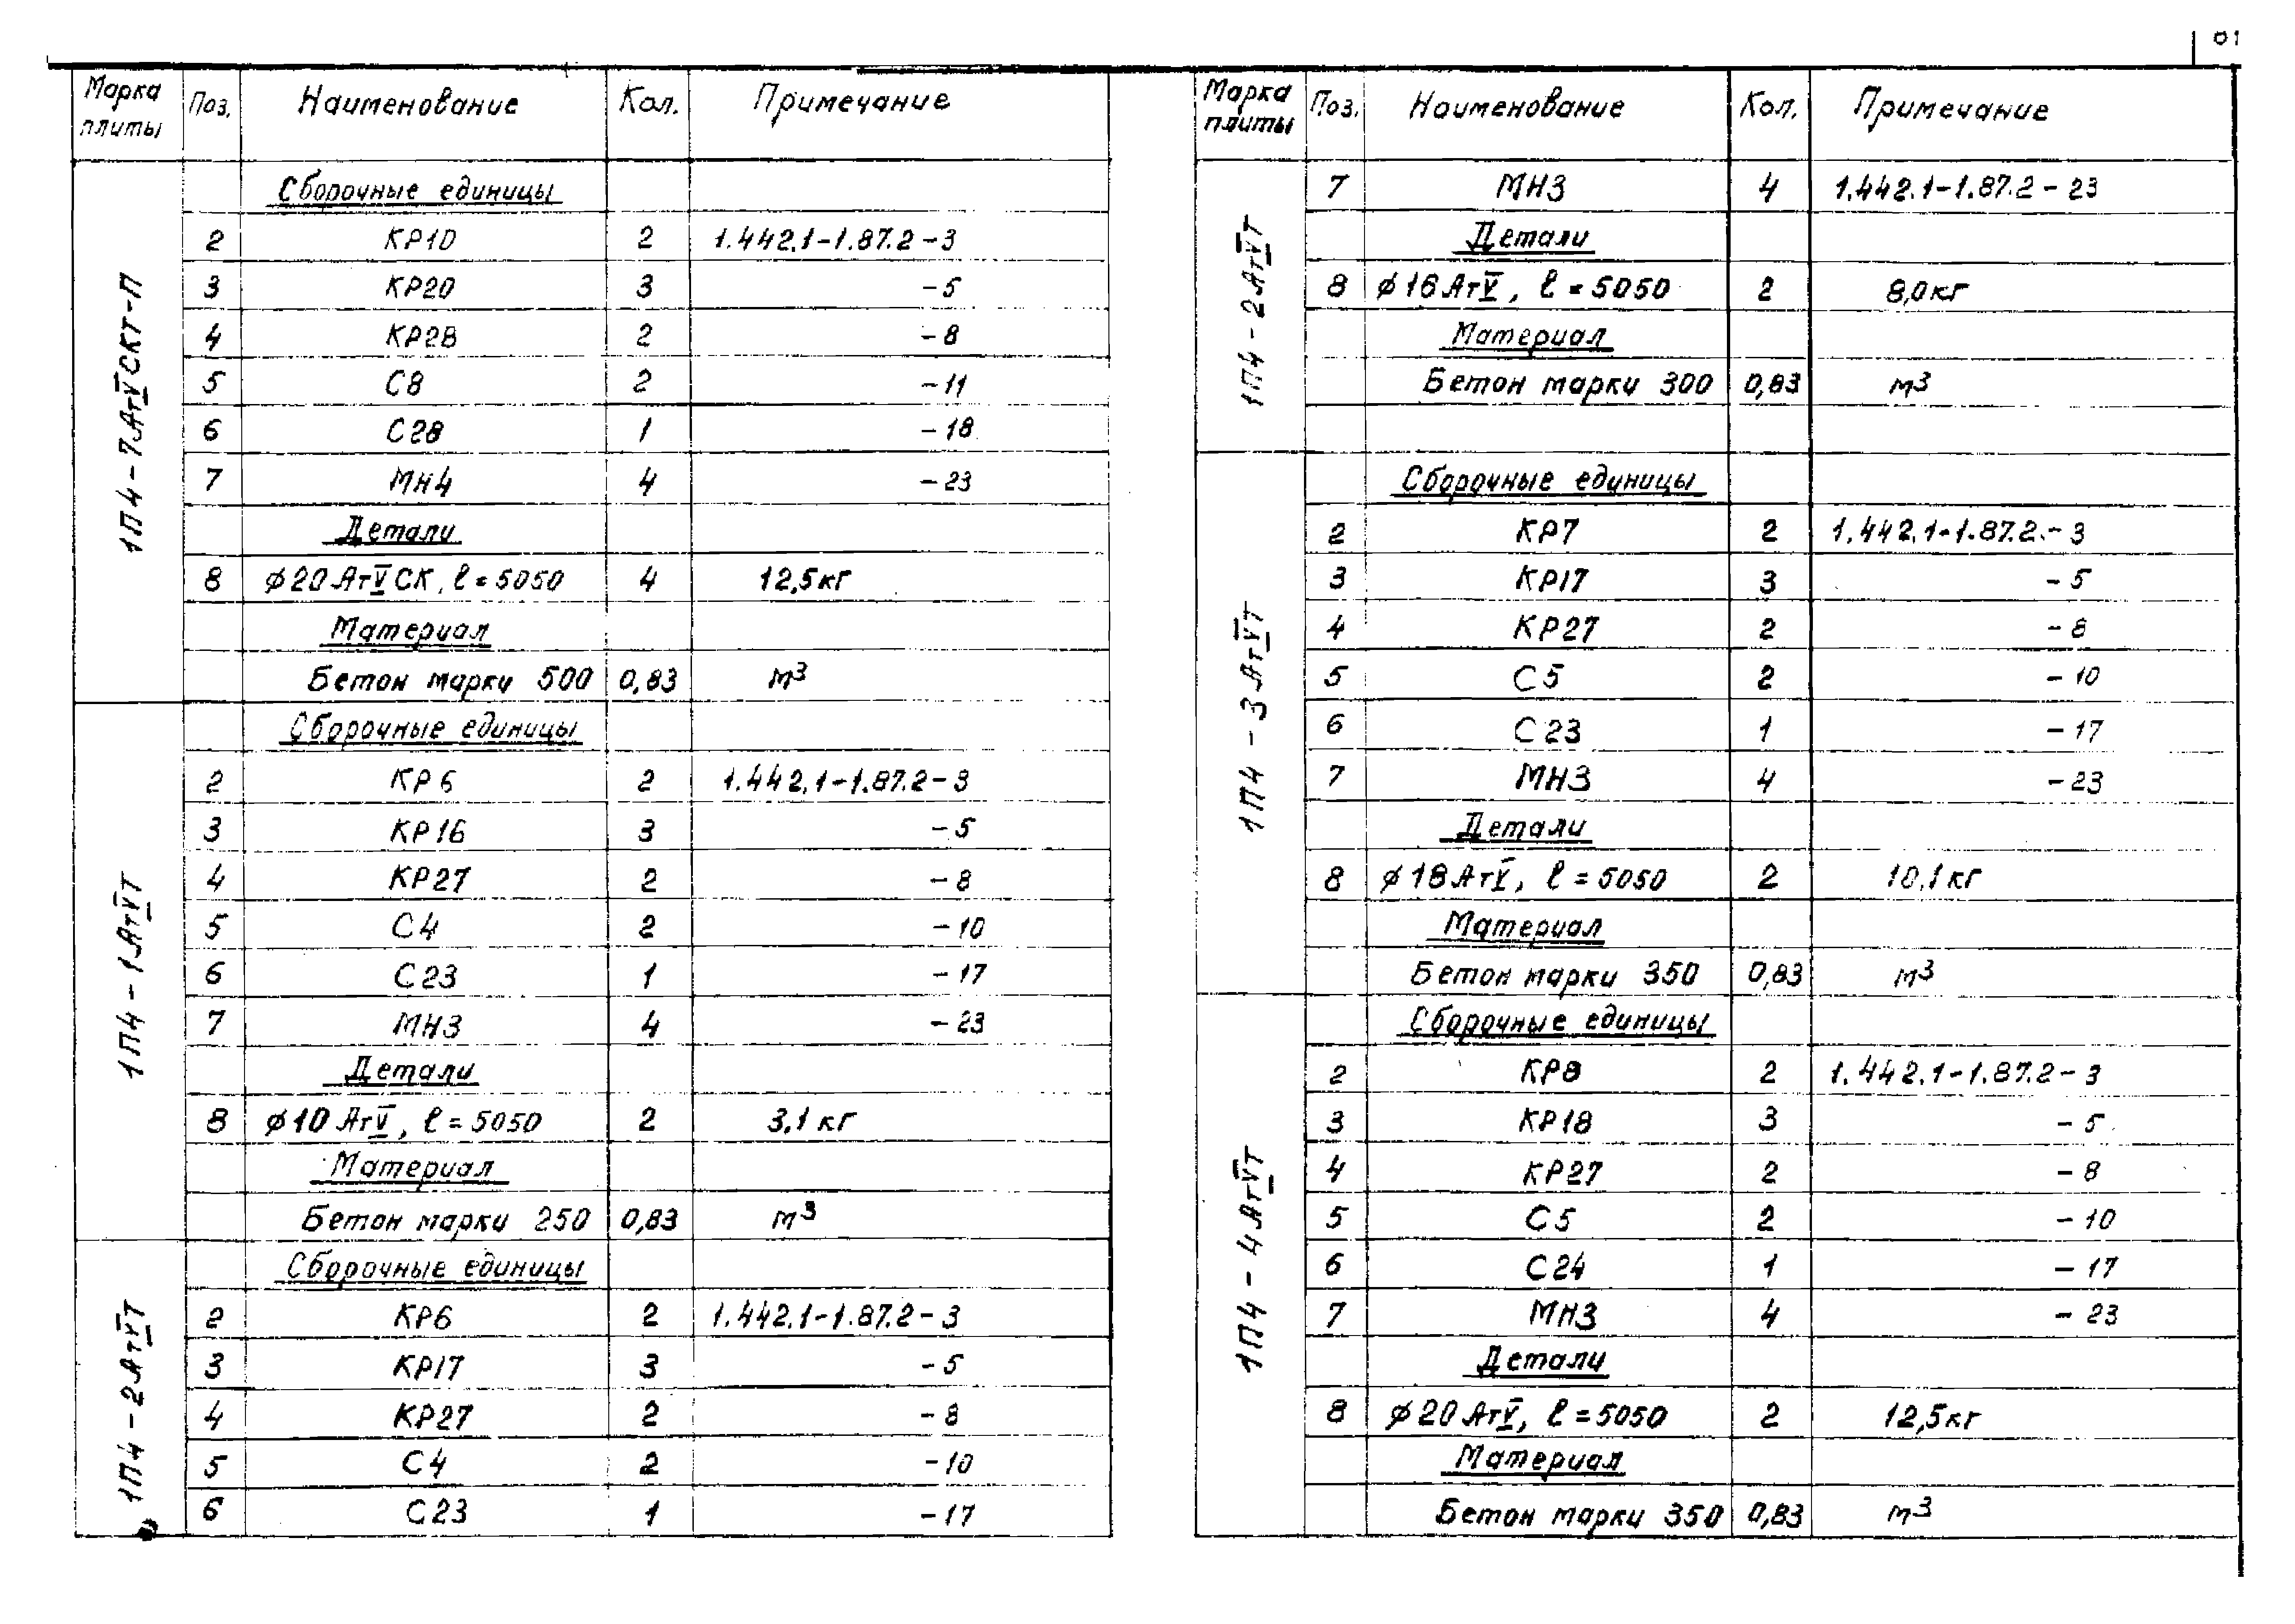 01
Марка плиты Поз. Наименование Кол. Примечание
1П4-7АтVСКТ-П
Сборочные единицы
2 КР10 2 1.442.1-1.87.2-3
3 КР20 3 -5
4 КР28 2 -8
5 С8 2 -11
6 С28 1 -18
7 МН4 4 -23
Детали
8 ⌀20АтVСК, ℓ=5050 4 12,5кг
Материал
Бетон марки 500 0,83 м³
1П4-1АтVТ
Сборочные единицы
2 КР6 2 1.442.1-1.87.2-3
3 КР16 3 -5
4 КР27 2 -8
5 С4 2 -10
6 С23 1 -17
7 МН3 4 -23
Детали
8 ⌀10АтV, ℓ=5050 2 3,1кг
Материал
Бетон марки 250 0,83 м³
1П4-2АтVТ
Сборочные единицы
2 КР6 2 1.442.1-1.87.2-3
3 КР17 3 -5
4 КР27 2 -8
5 С4 2 -10
6 С23 1 -17
Марка плиты Поз. Наименование Кол. Примечание
1П4-2АтVТ
7 МН3 4 1.442.1-1.87.2-23
Детали
8 ⌀16АтV, ℓ=5050 2 8,0кг
Материал
Бетон марки 300 0,83 м³
1П4-3АтVТ
Сборочные единицы
2 КР7 2 1.442.1-1.87.2.-3
3 КР17 3 -5
4 КР27 2 -8
5 С5 2 -10
6 С23 1 -17
7 МН3 4 -23
Детали
8 ⌀18АтV, ℓ=5050 2 10,1кг
Материал
Бетон марки 350 0,83 м³
1П4-4АтVТ
Сборочные единицы
2 КР8 2 1.442.1-1.87.2-3
3 КР18 3 -5
4 КР27 2 -8
5 С5 2 -10
6 С24 1 -17
7 МН3 4 -23
Детали
8 ⌀20АтV, ℓ=5050 2 12,5кг
Материал
Бетон марки 350 0,83 м³